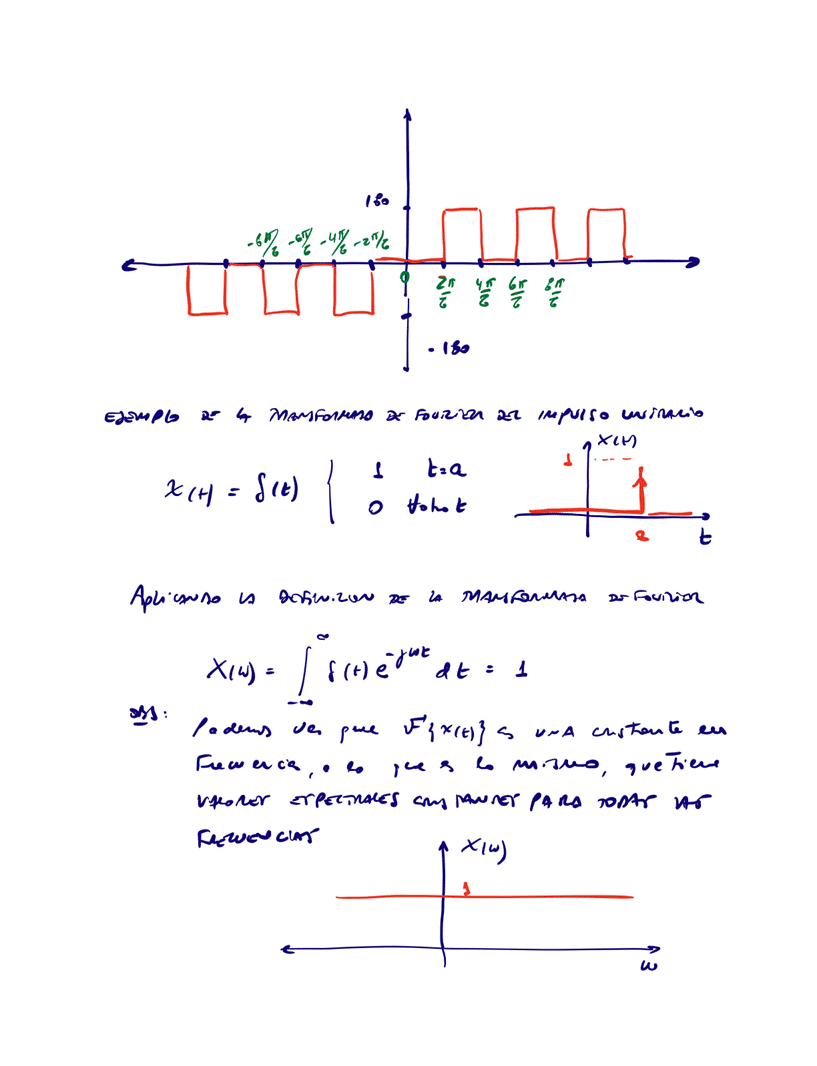 180
-8π/2 -6π/2 -4π/2 -2π/2
0 2π/2 4π/2 6π/2 8π/2
- 180
EJEMPLO DE LA TRANSFORMADA DE FOURIER DEL IMPULSO UNITARIO
x(t) = δ(t) { 1 t=a
0 todo t
x(t)
1
a
t
APLICANDO LA DEFINICION DE LA TRANSFORMADA DE FOURIER
X(ω) = ∫_{-∞}^{∞} δ(t) e^{-jωt} dt = 1
OBS:
Podemos ver que F{x(t)} es UNA constante en
Frecuencia, o lo que es lo mismo, que tiene
VALORES ESPECTRALES CONSTANTES PARA TODAS LAS
FRECUENCIAS
X(ω)
1
ω